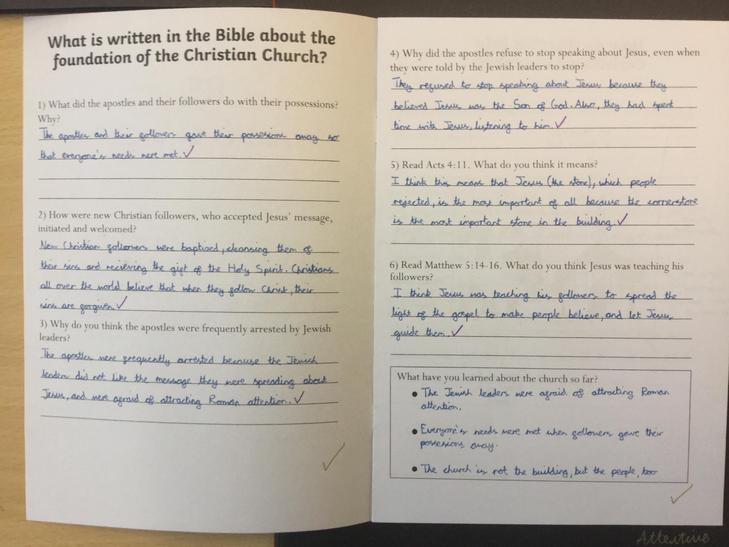 What is written in the Bible about the
foundation of the Christian Church?
1) What did the apostles and their followers do with their possessions?
Why?
The apostles and their followers gave their possesions away so
that everyone's needs were met. ✓
2) How were new Christian followers, who accepted Jesus' message,
initiated and welcomed?
New Christian followers were baptised, cleansing them of
their sins and recieving the gift of the Holy Spirit. Christians
all over the world believe that when they follow Christ, their
sins are forgiven ✓
3) Why do you think the apostles were frequently arrested by Jewish
leaders?
The apostles were frequently arrested because the Jewish
leaders did not like the message they were spreading about
Jesus, and were afraid of attracting Roman attention. ✓
✓
4) Why did the apostles refuse to stop speaking about Jesus, even when
they were told by the Jewish leaders to stop?
They refused to stop speaking about Jesus because they
believed Jesus was the Son of God. Also, they had spent
time with Jesus, listening to him ✓
5) Read Acts 4:11. What do you think it means?
I think this means that Jesus (the stone), which people
rejected, is the most important of all because the cornerstone
is the most important stone in the building. ✓
6) Read Matthew 5:14-16. What do you think Jesus was teaching his
followers?
I think Jesus was teaching his followers to spread the
light of the gospel to make people believe, and let Jesus
guide them. ✓
What have you learned about the church so far?
• The Jewish leaders were afraid of attracting Roman
attention.
• Everyone's needs were met when followers gave their
possesions away.
• The church is not the building, but the people, too
✓
Attentive